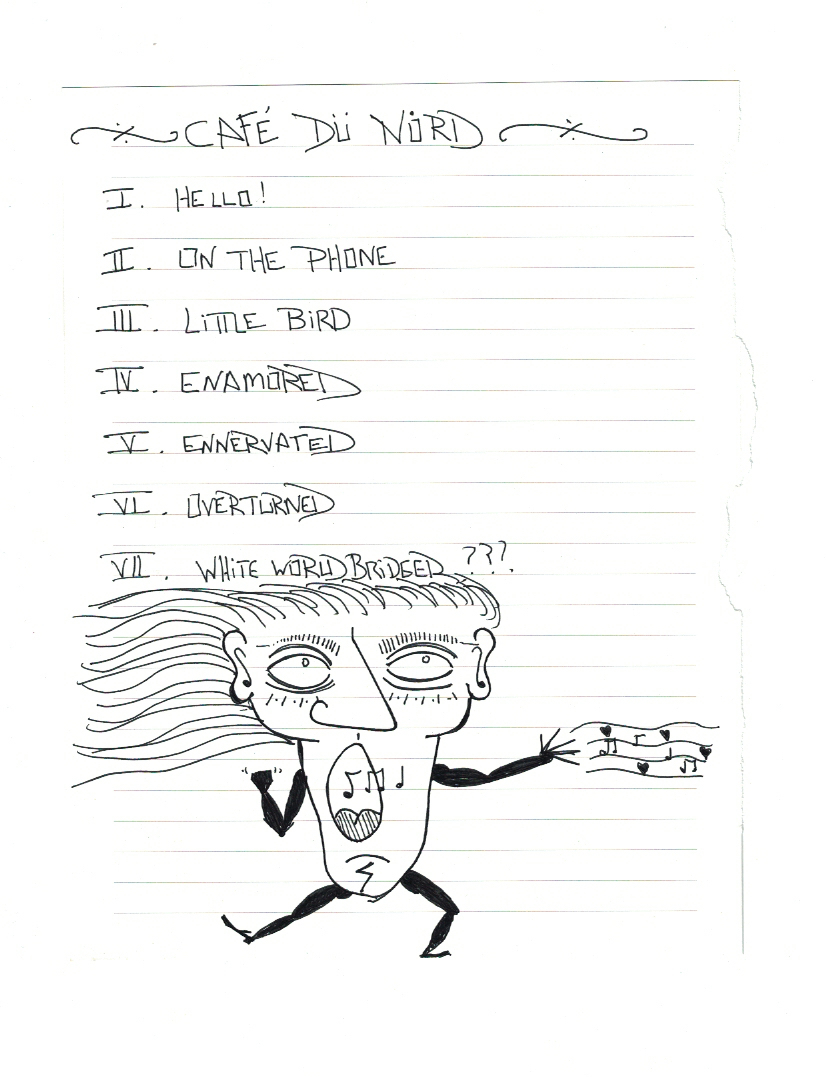 CAFÉ DÜ NÖRD
I. HELLO!
II. ON THE PHONE
III. LiTTLE BiRD
IV. ENAMORED
V. ENNERVATED
VI. OVERTURNED
VII. WHiTE WORLD BRiDGED ???